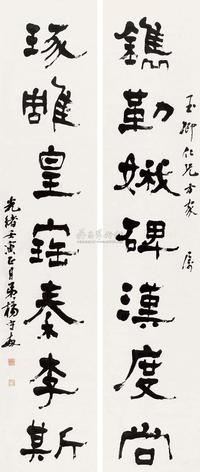 玉卿仁兄方家 屬
鐫勒娥碑漢度尚
琢雕皇寶秦李斯
光緒壬寅正月弟楊守敬